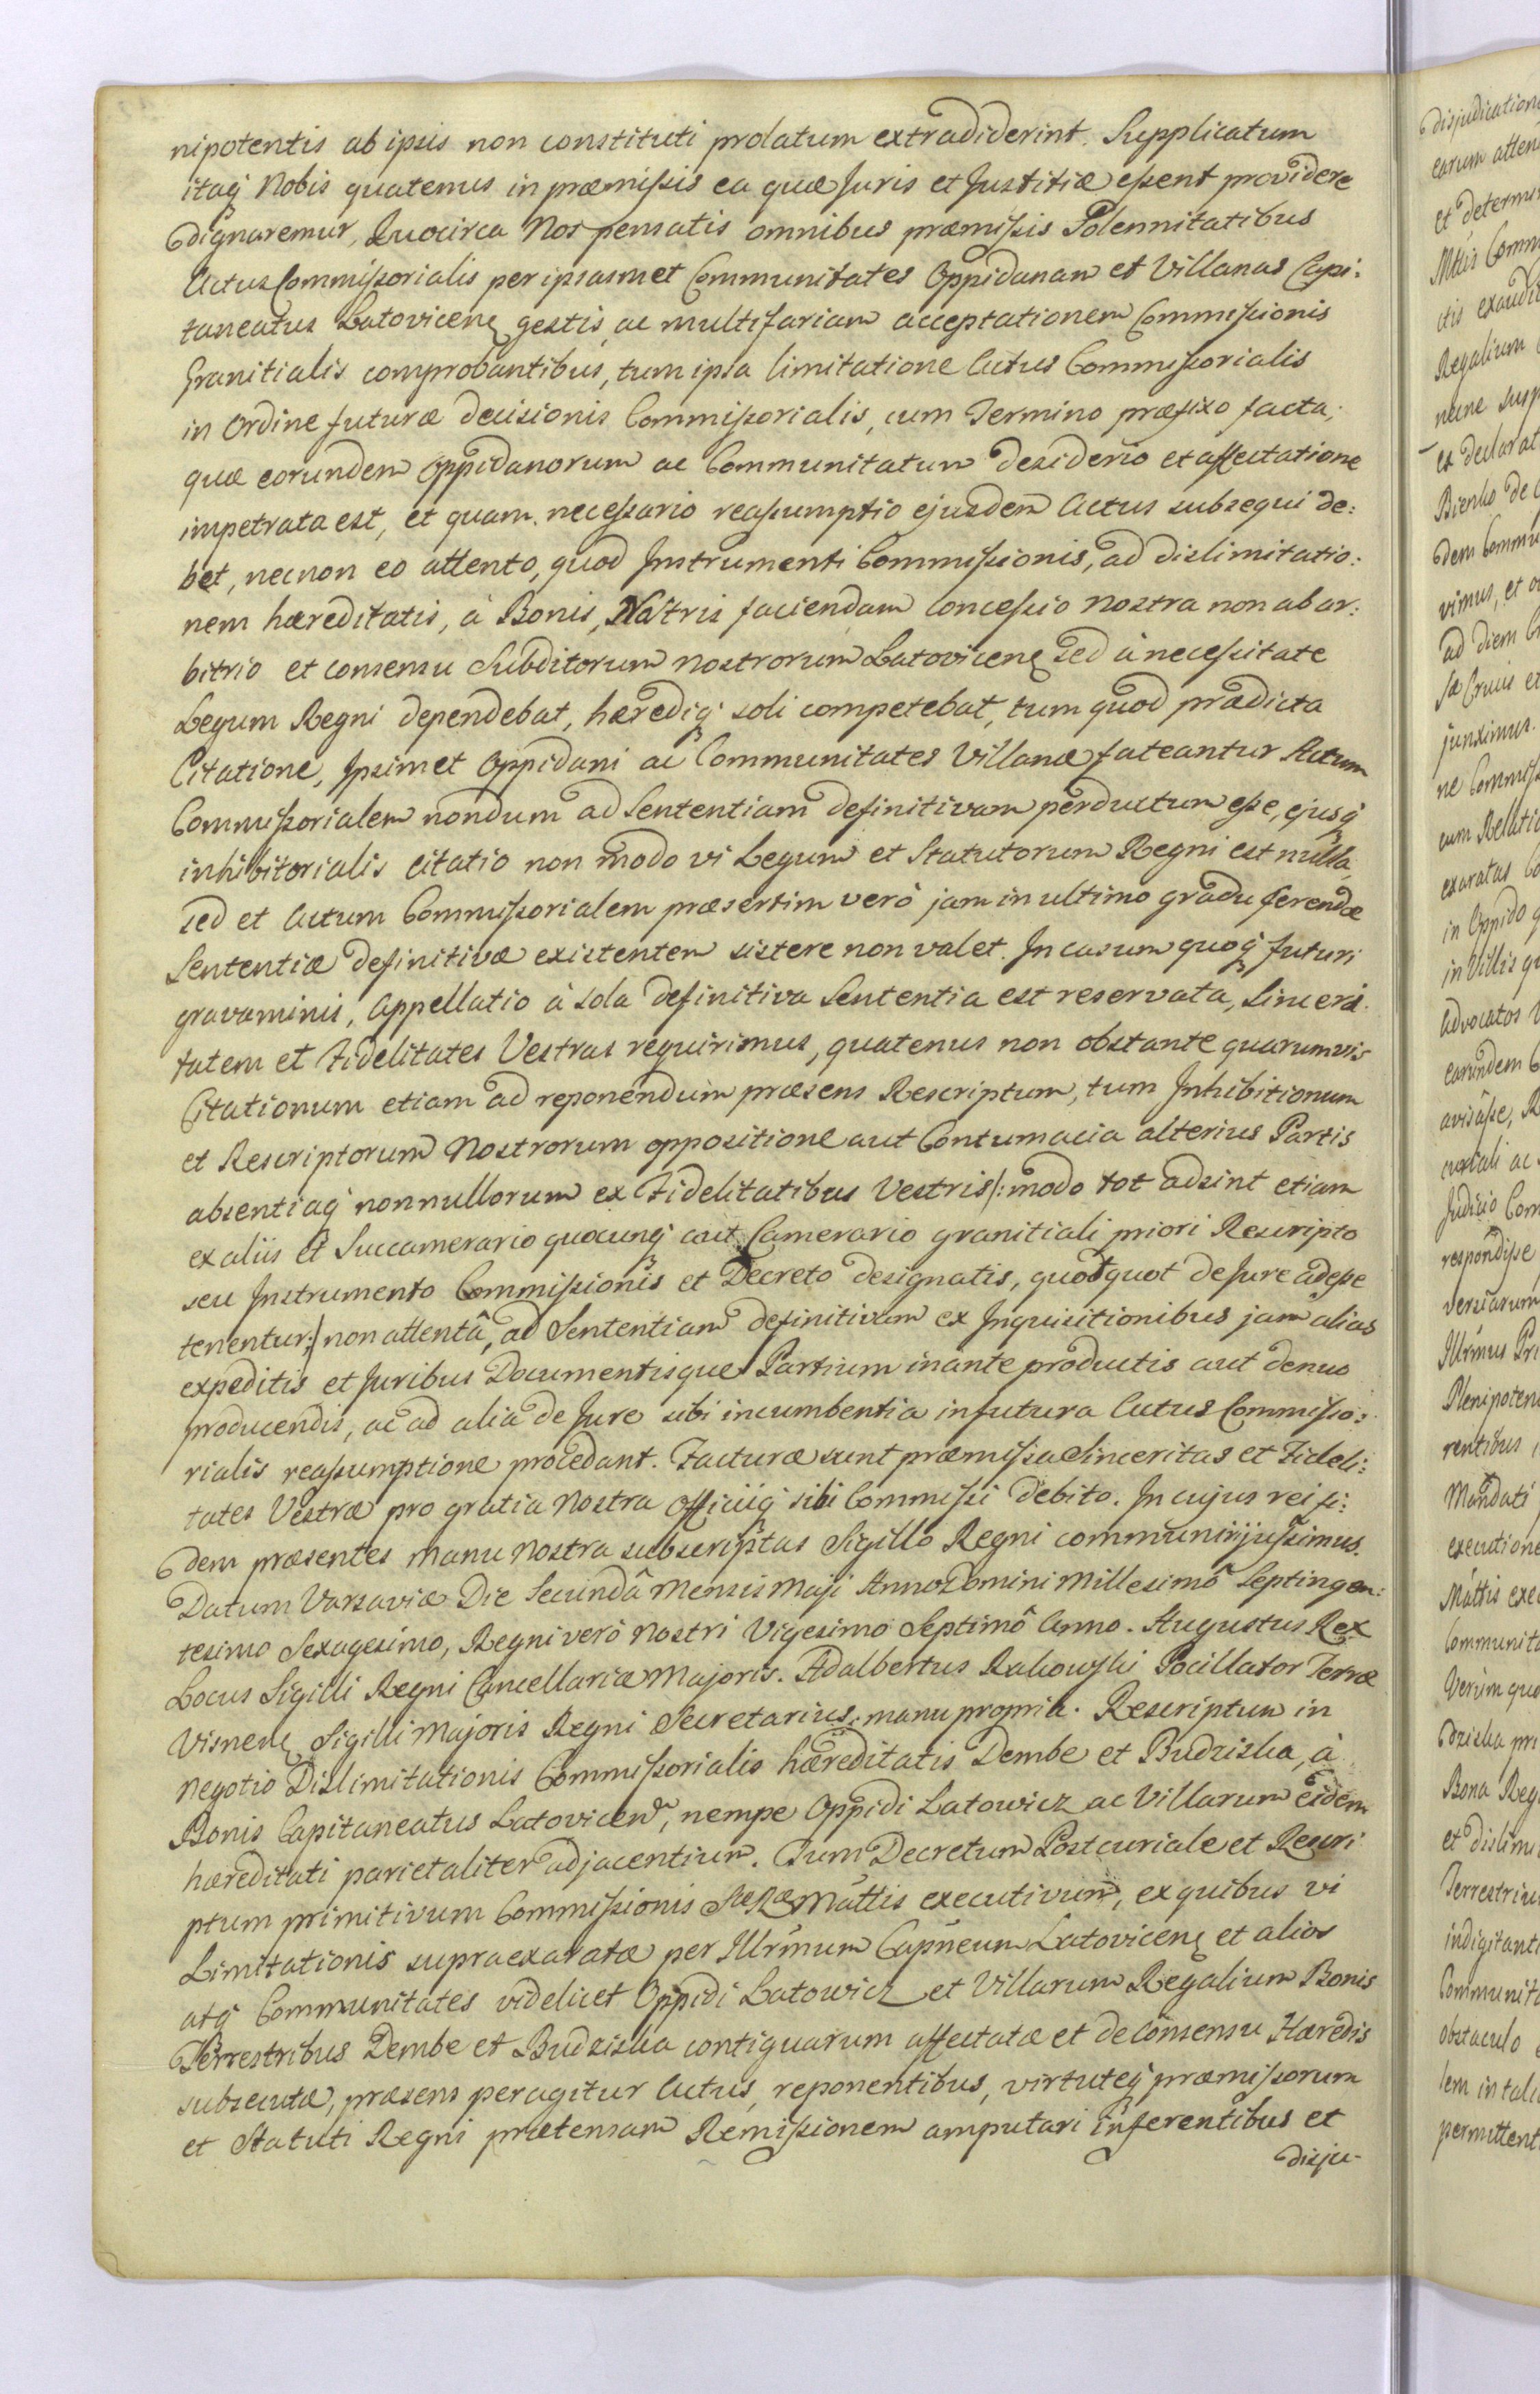 nipotentis ab ipsis non constituti prolatum extradiderint. Supplicatum
itaq; Nobis quatenus in præmißis ea quæ Juris et Justitiæ eßent providere
dignaremur, Quocirca Nos pensatis omnibus præmißis Solennitatibus
Actus Commißorialis per ipsasmet Communitates Oppidanam et Villanas Capi:
taneatus Latovicen; gestis, ac multifariam acceptationem Commißionis
Granitialis comprobantibus, tum ipsa limitatione Actus Commißorialis
in Ordine futuræ decisionis Commißorialis, cum Termino præfixo facta;
quæ eorundem Oppidanorum ac Communitatum desiderio et affectatione
impetrata est, et quam neceßario reaßumptio ejusdem Actus subsequi de:
bet, necnon eo attento, quod Instrumenti Commißionis, ad dislimitatio:
nem hæreditatis, à Bonis, Nostris faciendam concessio nostra non ab ar:
bitrio et consensu Subditorum nostrorum Latovicen; sed à neceßitate
Legum Regni dependebat, hærediq; soli competebat, tum quod prædicta
Citatione, Ipsimet Oppidani ac Communitates Villanæ fateantur Actum
Commißorialem nondum ad Sententiam definitivam perductum eße, ejusq;
inhibitorialis citatio non modo vi Legum et Statutorum Regni est nulla,
sed et Actum Commißorialem præsertim verò jam in ultimo gradu ferendæ
Sententiæ definitivæ existentem sistere non valet. In casum quoq; futuri
gravaminis, Appellatio à sola definitiva Sententia est reservata, Sinceri:
tatem et Fidelitates Vestras requirimus, quatenus non obstante quarumvis
Citationum etiam ad reponendum præsens Rescriptum, tum Inhibitionum
et Rescriptorum Nostrorum oppositione aut Contumacia alterius Partis
absentiaq; nonnullorum ex Fidelitatibus Vestris /: modo tot adsint etiam
ex aliis et Succamerario quocunq; aut Camerario granitiali priori Rescripto
seu Instrumento Commißionis et Decreto designatis, quodquot de Jure adeße
tenentur :/ non attentâ, ad Sententiam definitivam ex Inquisitionibus jam alias
expeditis et Juribus Documentisque Partium in ante productis aut denuo
producendis, ac ad alia de Jure sibi incumbentia in futura Actus Commißo:
rialis reaßumptione procedant. Facturæ sunt præmißa Sinceritas et Fideli:
tates Vestræ pro gratia Nostra Officiiq; sibi Commißi debito. In cujus rei fi:
dem præsentes manu nostra subscriptas Sigillo Regni communiri jußimus.
Datum Varsaviæ Die Secundâ Mensis Maji Anno Domini Millesimô Septingen:
tesimo Sexagesimo, Regni verò Nostri Vigesimo Septimô Anno. Augustus Rex
Locus Sigilli Regni Cancellariæ Majoris. Adalbertus Rakowski Pocillator Terræ
Visnen; Sigilli Majoris Regni Secretarius, manu propria. Rescriptum in
negotio Dislimitationis Commißorialis hæreditatis Dembe et Budziska, à
Bonis Capitaneatus Latovicen, nempe Oppidi Latowicz ac Villarum eidem
hæreditati parietaliter adjacentium. Tum Decretum Postcuriale et Rescri
ptum primitivum Commißionis Sæ Ræ Mattis executivum, ex quibus vi
Limitationis supraexaratæ per Illrmum Capneum Latovicen; et alios
atq; Communitates videlicet Oppidi Latowicz et Villarum Regalium Bonis
Terrestribus Dembe et Budziska contiguarum affectatæ et de consensu Hæredis
subsecutæ, præsens peragitur Actus, reponentibus, virtuteq; præmißorum
et Statuti Regni prætensam Remißionem amputari inferentibus et
disju-